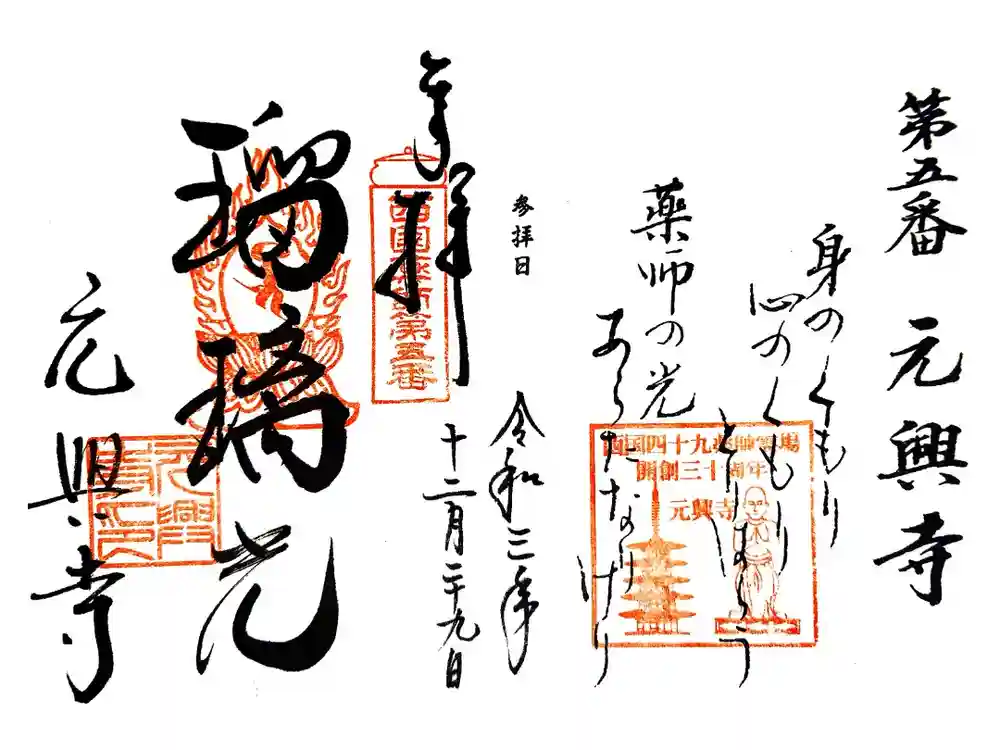 第五番 元興寺
身のくもり
心のくもり
とりはらう
薬師の光
あらたなりけり
西国四十九薬師霊場
開創三十周年
元興寺
参拝日
令和三年
十二月二十九日
奉拝
西國薬師第五番
瑠璃光
元興寺